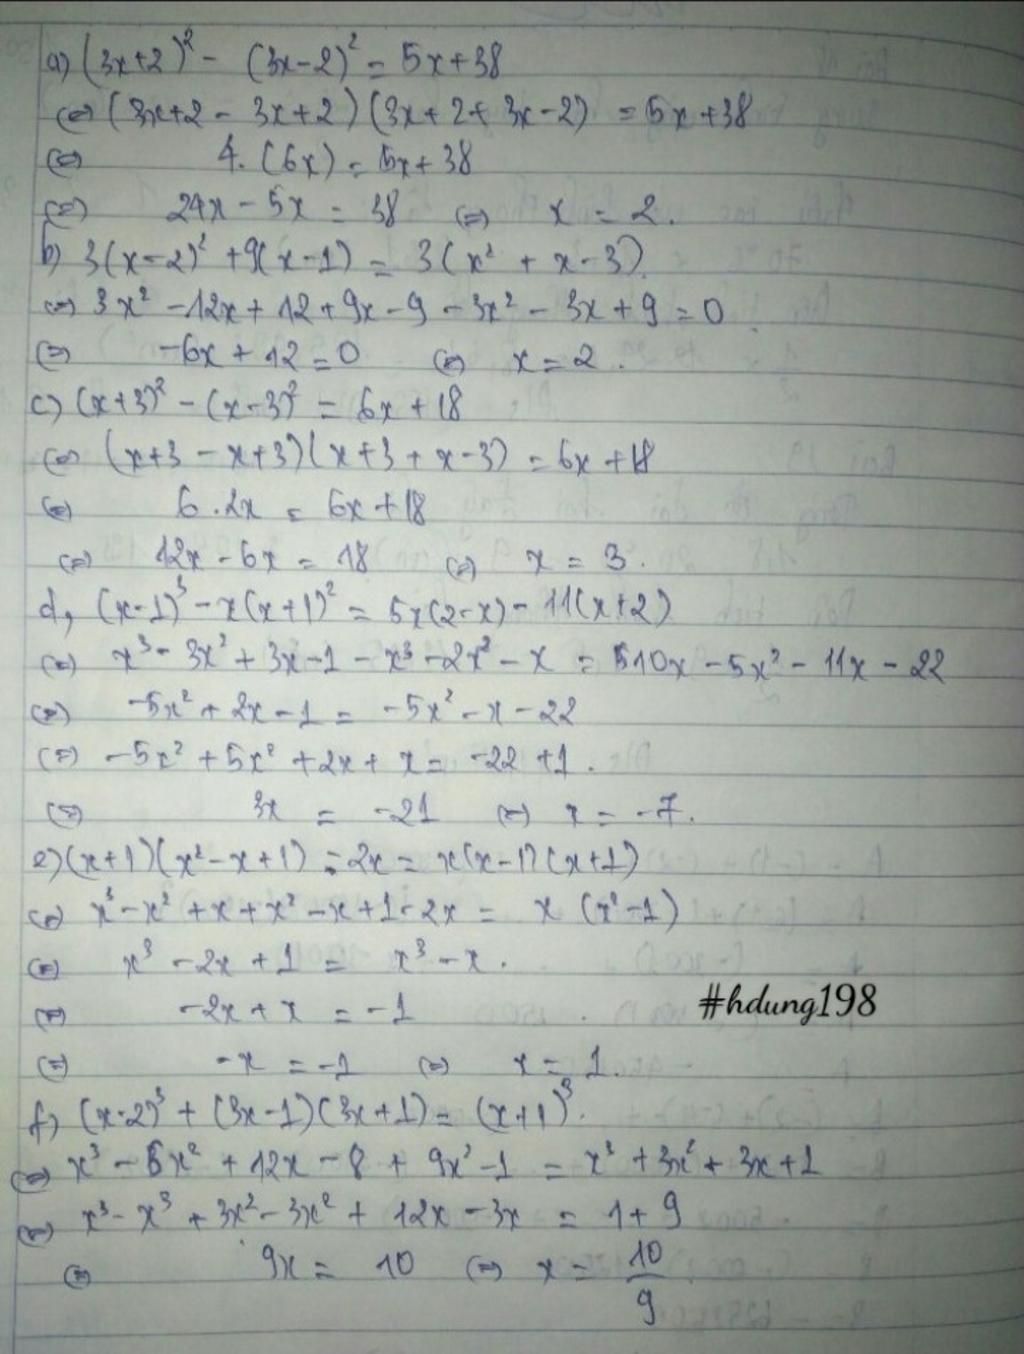 a) (3x+2)² - (3x-2)² = 5x+38
(=) (3x+2 - 3x+2)(3x+2+3x-2) = 5x+38
(=) 4.(6x) = 5x+38
(=) 24x - 5x = 38 (=) x = 2.
b) 3(x-2)² + 9(x-1) = 3(x² + x-3)
(=) 3x² - 12x + 12 + 9x - 9 - 3x² - 3x + 9 = 0
(=) -6x + 12 = 0 (=) x = 2.
c) (x+3)² - (x-3)² = 6x + 18
(=) (x+3 - x+3)(x+3+x-3) = 6x + 18
(=) 6.2x = 6x + 18
(=) 12x - 6x = 18 (=) x = 3.
d, (x-1)³ - x(x+1)² = 5x(2-x) - 11(x+2)
(=) x³ - 3x² + 3x - 1 - x³ - 2x² - x = 10x - 5x² - 11x - 22
(=) -5x² + 2x - 1 = -5x² - x - 22
(=) -5x² + 5x² + 2x + x = -22 + 1.
(=) 3x = -21 (=) x = -7.
e) (x+1)(x²-x+1) - 2x = x(x-1)(x+1)
(=) x³ - x² + x + x² - x + 1 - 2x = x (x²-1)
(=) x³ - 2x + 1 = x³ - x.
(=) -2x + x = -1
#hdung198
(=) -x = -1 (=) x = 1.
f) (x-2)³ + (3x-1)(3x+1) = (x+1)³.
(=) x³ - 6x² + 12x - 8 + 9x² - 1 = x³ + 3x² + 3x + 1
(=) x³ - x³ + 3x² - 3x² + 12x - 3x = 1 + 9
(=) 9x = 10 (=) x = 10/9